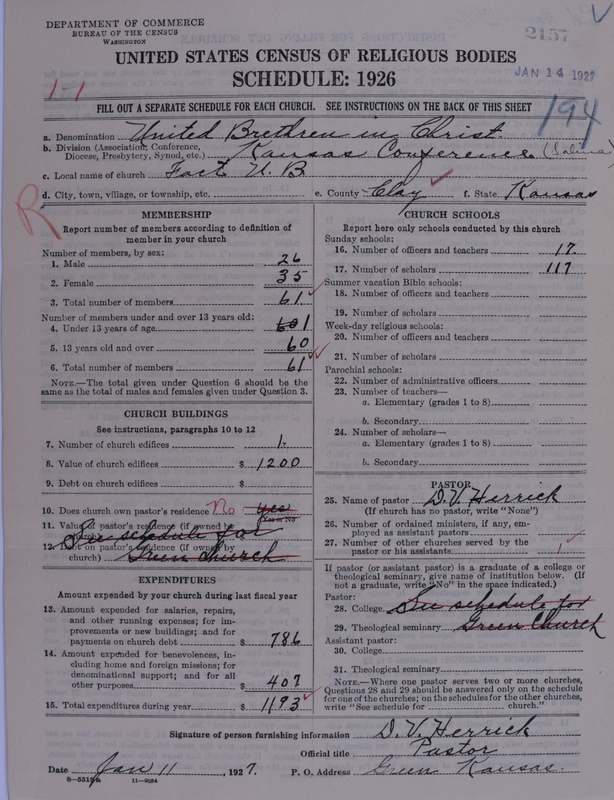 DEPARTMENT OF COMMERCE
BUREAU OF THE CENSUS
WASHINGTON
2157
UNITED STATES CENSUS OF RELIGIOUS BODIES
SCHEDULE: 1926
JAN 14 1927
1-1
FILL OUT A SEPARATE SCHEDULE FOR EACH CHURCH. SEE INSTRUCTIONS ON THE BACK OF THIS SHEET
194
a. Denomination United Brethren in Christ.
b. Division (Association, Conference, Diocese, Presbytery, Synod, etc.) Kansas Conference (Salina)
c. Local name of church Fact U. B
d. City, town, village, or township, etc.
e. County Clay f. State Kansas
R
MEMBERSHIP
Report number of members according to definition of member in your church
Number of members, by sex:
1. Male 26
2. Female 35
3. Total number of members 61
Number of members under and over 13 years old:
4. Under 13 years of age 1
5. 13 years old and over 60
6. Total number of members 61
NOTE.—The total given under Question 6 should be the same as the total of males and females given under Question 3.
CHURCH BUILDINGS
See instructions, paragraphs 10 to 12
7. Number of church edifices 1.
8. Value of church edifices $ 1200
9. Debt on church edifices $
10. Does church own pastor's residence? No yes
Yes or No
11. Value of pastor's residence (if owned by church)
See schedule for
12. Debt on pastor's residence (if owned by church)
Green Church
EXPENDITURES
Amount expended by your church during last fiscal year
13. Amount expended for salaries, repairs, and other running expenses; for improvements or new buildings; and for payments on church debt $ 786
14. Amount expended for benevolences, including home and foreign missions; for denominational support; and for all other purposes $ 407
15. Total expenditures during year $ 1193
CHURCH SCHOOLS
Report here only schools conducted by this church
Sunday schools:
16. Number of officers and teachers 17
17. Number of scholars 117
Summer vacation Bible schools:
18. Number of officers and teachers
19. Number of scholars
Week-day religious schools:
20. Number of officers and teachers
21. Number of scholars
Parochial schools:
22. Number of administrative officers
23. Number of teachers—
a. Elementary (grades 1 to 8)
b. Secondary
24. Number of scholars—
a. Elementary (grades 1 to 8)
b. Secondary
PASTOR
25. Name of pastor D. V. Herrick
(If church has no pastor, write "None")
26. Number of ordained ministers, if any, employed as assistant pastors
27. Number of other churches served by the pastor or his assistants 1
If pastor (or assistant pastor) is a graduate of a college or theological seminary, give name of institution below. (If not a graduate, write "No" in the space indicated.)
Pastor:
28. College See schedule for
29. Theological seminary Green Church
Assistant pastor:
30. College
31. Theological seminary
NOTE.—Where one pastor serves two or more churches, Questions 28 and 29 should be answered only on the schedule for one of the churches; on the schedules for the other churches, write "See schedule for church."
Signature of person furnishing information D. V. Herrick
Official title Pastor
Date Jan 11, 1927. P. O. Address Green Kansas.
11-9054